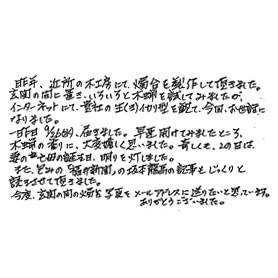 昨年、近所の木工房にて、燭台を製作して頂きました。
玄関の間に置き、いろいろと木蝋を試してみましたが、
インターネットにて、貴社の生(き)イカリ型を観て、今回、お世話に
なりました。
一昨日 届きました。早速開けてみましたところ、
木蝋の香りに、大変嬉しく思いました。奇しくも、この日は、
妻の七回の誕生日、明りを灯しました。
また、とみの「新聞」の坂本龍馬の記事もじっくりと
読ませて頂きました。
今度、玄関の間の燭台写真をメールアドレスに送りたいと思っています。
ありがとうございました。